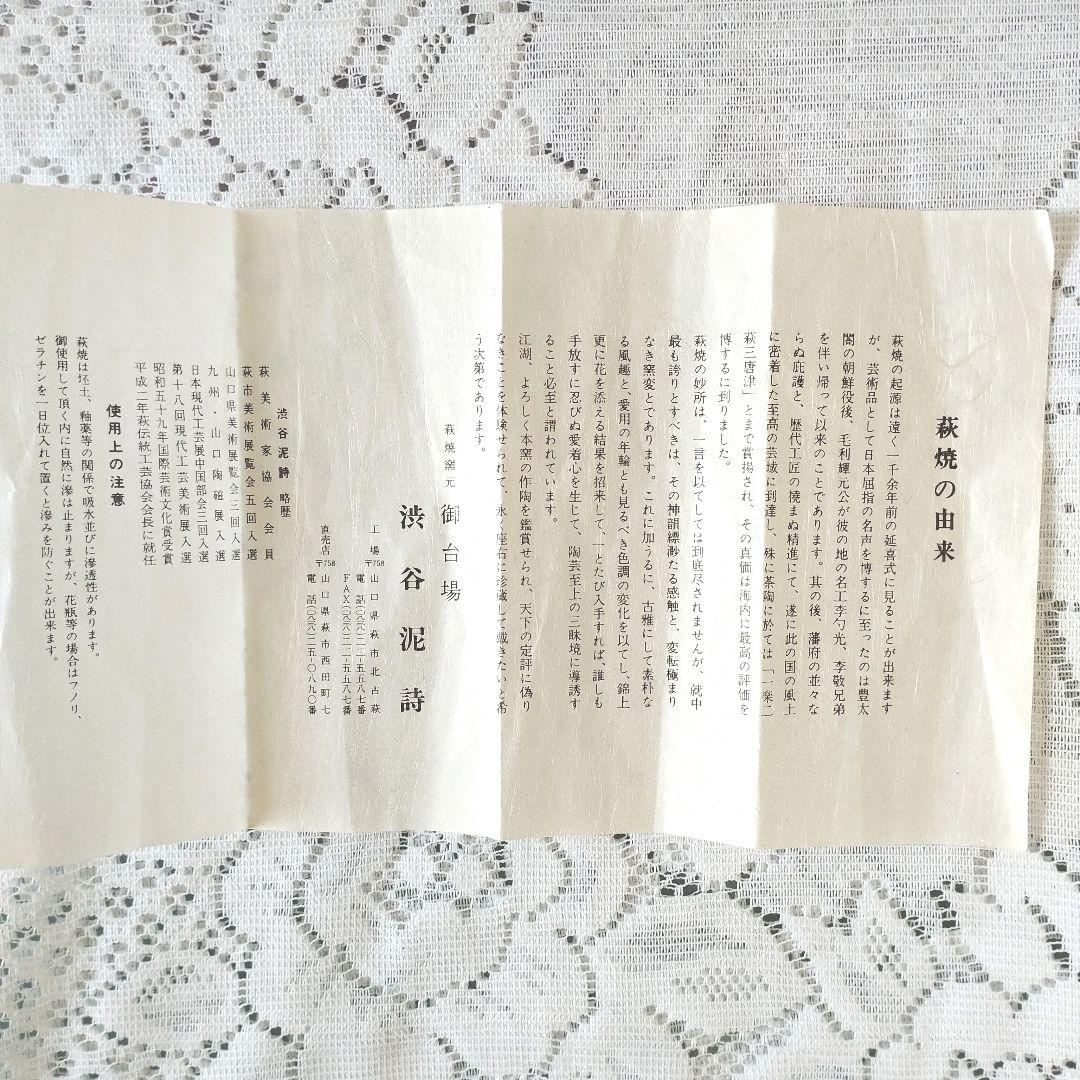 萩焼の由来
萩焼の起源は遠く一千余年前の延喜式に見ることが出来ます
が、芸術品として日本屈指の名声を博するに至ったのは豊太
閤の朝鮮役後、毛利輝元公が彼の地の名工李勺光、李敬兄弟
を伴い帰って以来のことであります。其の後、藩府の並々な
らぬ庇護と、歴代工匠の撓まぬ精進にて、遂に此の国の風土
に密着した至高の芸域に到達し、殊に茶陶に於ては「一楽二
萩三唐津」とまで賞揚され、その真価は海内に最高の評価を
博するに到りました。
萩焼の妙所は、一言を以てしては到底尽されませんが、就中
最も誇りとすべきは、その神韻縹渺たる感触と、変転極まり
なき窯変とであります。これに加うるに、古雅にして素朴な
る風趣と、愛用の年輪とも見るべき色調の変化を以てし、錦上
更に花を添える結果を招来して、一とたび入手すれば、誰しも
手放すに忍びぬ愛着心を生じて、陶芸至上の三昧境に導誘す
ること必至と謂われています。
江湖、よろしく本窯の作陶を鑑賞せられ、天下の定評に偽り
なきことを体験せられて、永く座右に珍蔵して戴きたいと希
う次第であります。
萩焼窯元 御台場
渋谷泥詩
工場 〒758 山口県萩市北古萩
電話(〇八三八)二二-五五八七番
FAX(〇八三八)二二-五五八七番
直売店 〒758 山口県萩市西田町七
電話(〇八三八)二五-〇八九〇番
渋谷泥詩 略歴
萩美術家協会会員
萩市美術展覧会五回入選
山口県美術展覧会三回入選
九州・山口陶磁展入選
日本現代工芸展中国部会三回入選
第十八回現代工芸美術展入選
昭和五十九年国際芸術文化賞受賞
平成二年萩伝統工芸協会会長に就任
使用上の注意
萩焼は坯土、釉薬等の関係で吸水並びに滲透性があります。
御使用して頂く内に自然に滲は止まりますが、花瓶等の場合はフノリ、
ゼラチンを一日位入れて置くと滲みを防ぐことが出来ます。